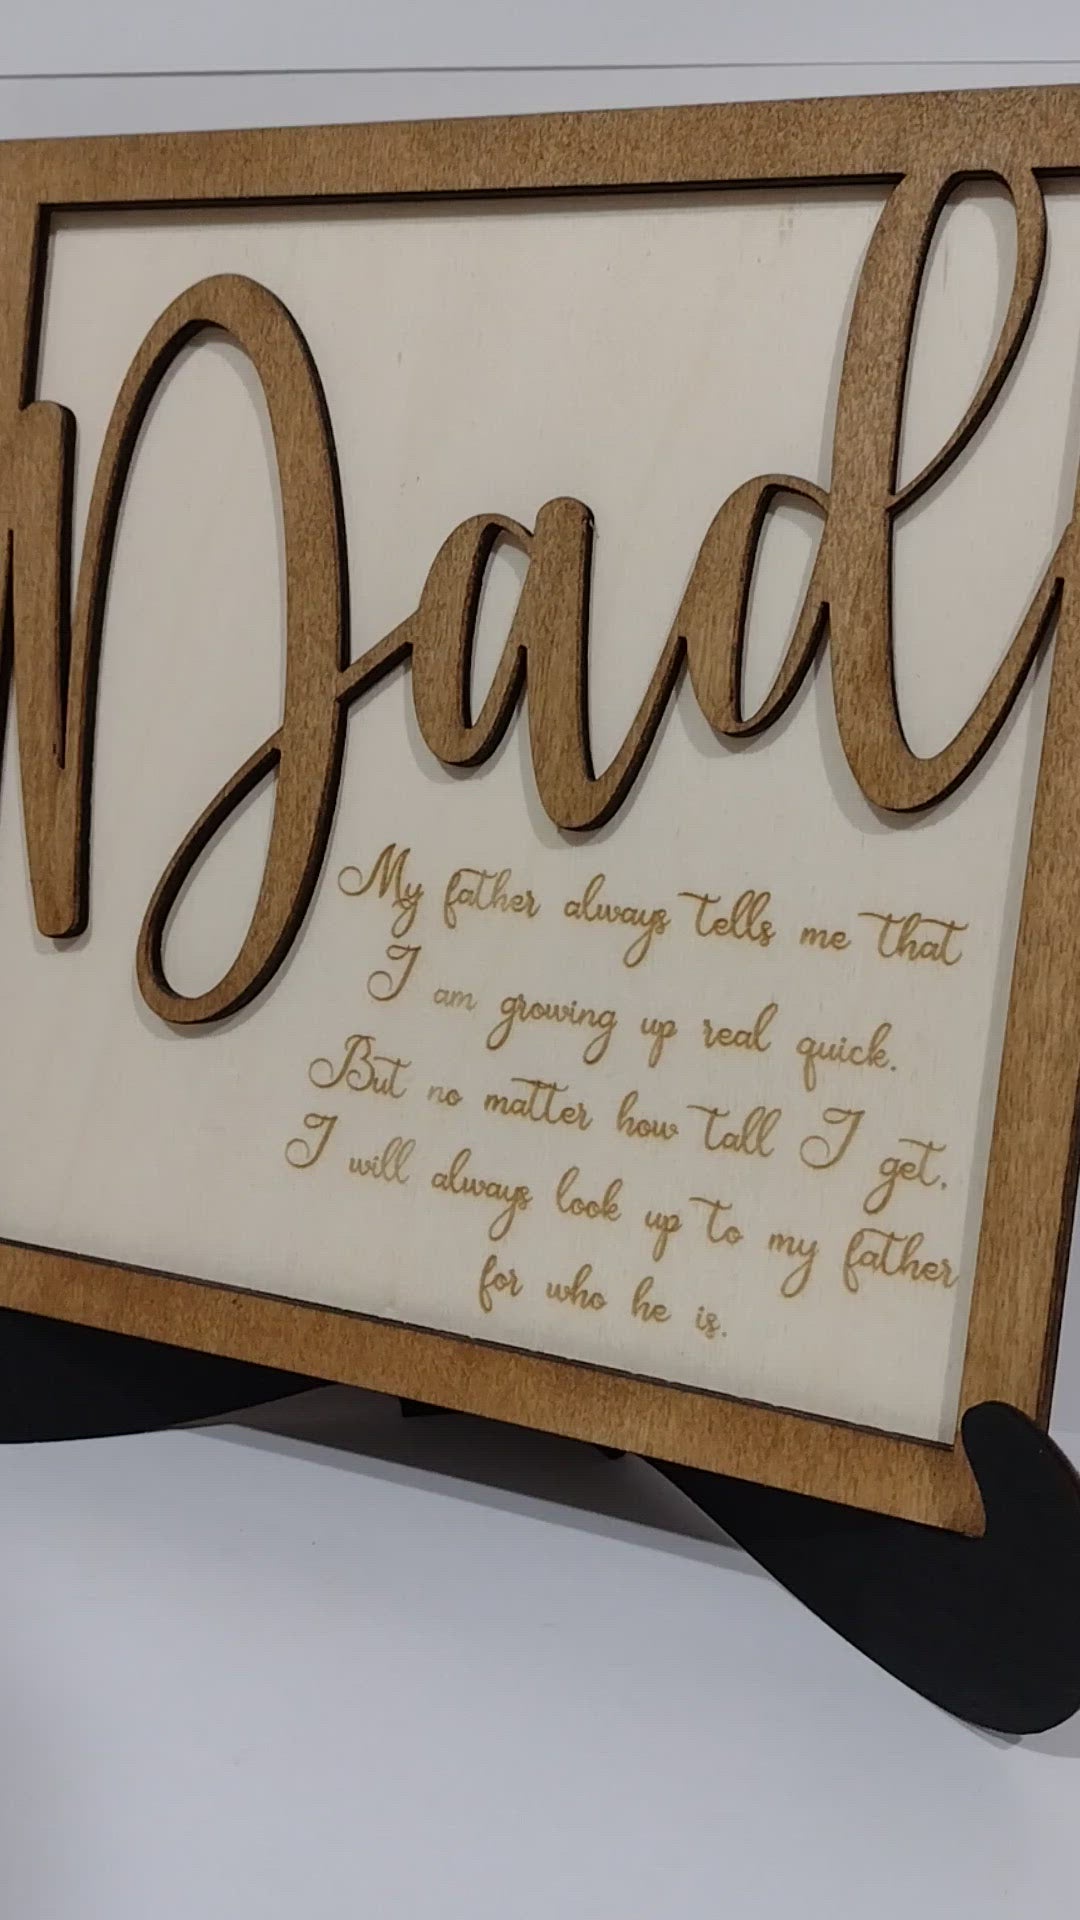 Dad
My father always tells me that
I am growing up real quick.
But no matter how tall I get,
I will always look up to my father
for who he is.